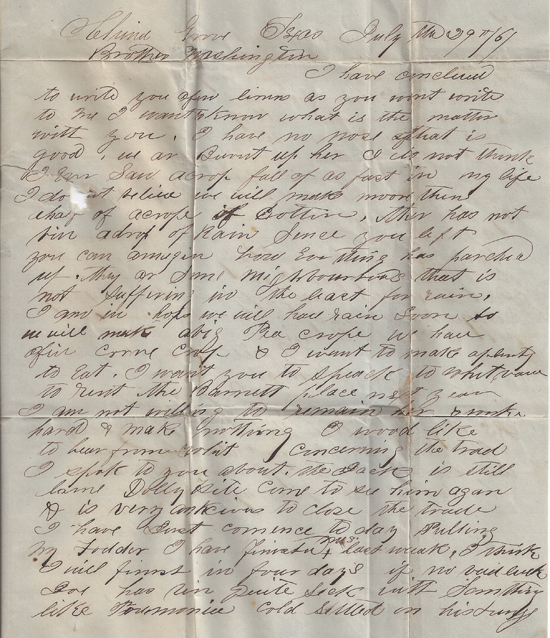 Grove Texas July the 29th/61
Brother Washington
I have concluded
to write you a few lines as you wont write
to me I want to know what is the matter
with you. I have no nose that is
good, we ar Burnt up her I do not think
I Ever Saw a crop fall of as fast in my life
I do not believe we will make more then
a half of a crope of Cotten. Ther has not
bin a drop of Rain Sence you left
you can amagin how Every thing has parched
up. they ar Some Nighbourhoods that is
not Suffering in the least for rain.
I am in hops we will have rain Soon so
we will make a big Pea crope we have
a fin corn crop & I want to make a plenty
to Eat. I want you to Speake to
to rent the Barnett place next year
I am not willing to remain her & worke
hard & make nothing I wood like
to hear from concerning the trad
I spok to you about. the Jack is still
lame Dolly hite come to see him again
& is very ankcious to close the trade
I have Just comence to day Pulling
my fodder I have finished last weak, I think
I will finist in four days if no bad luck
has bin quite Sick with Somthing
like Pneumonia cold settled on his lungs